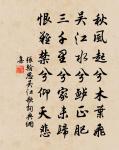 秋風起兮木葉飛
吳江水兮鱸正肥
三千里兮家未歸
恨難禁兮仰天悲
張翰思吳江歌詞典網